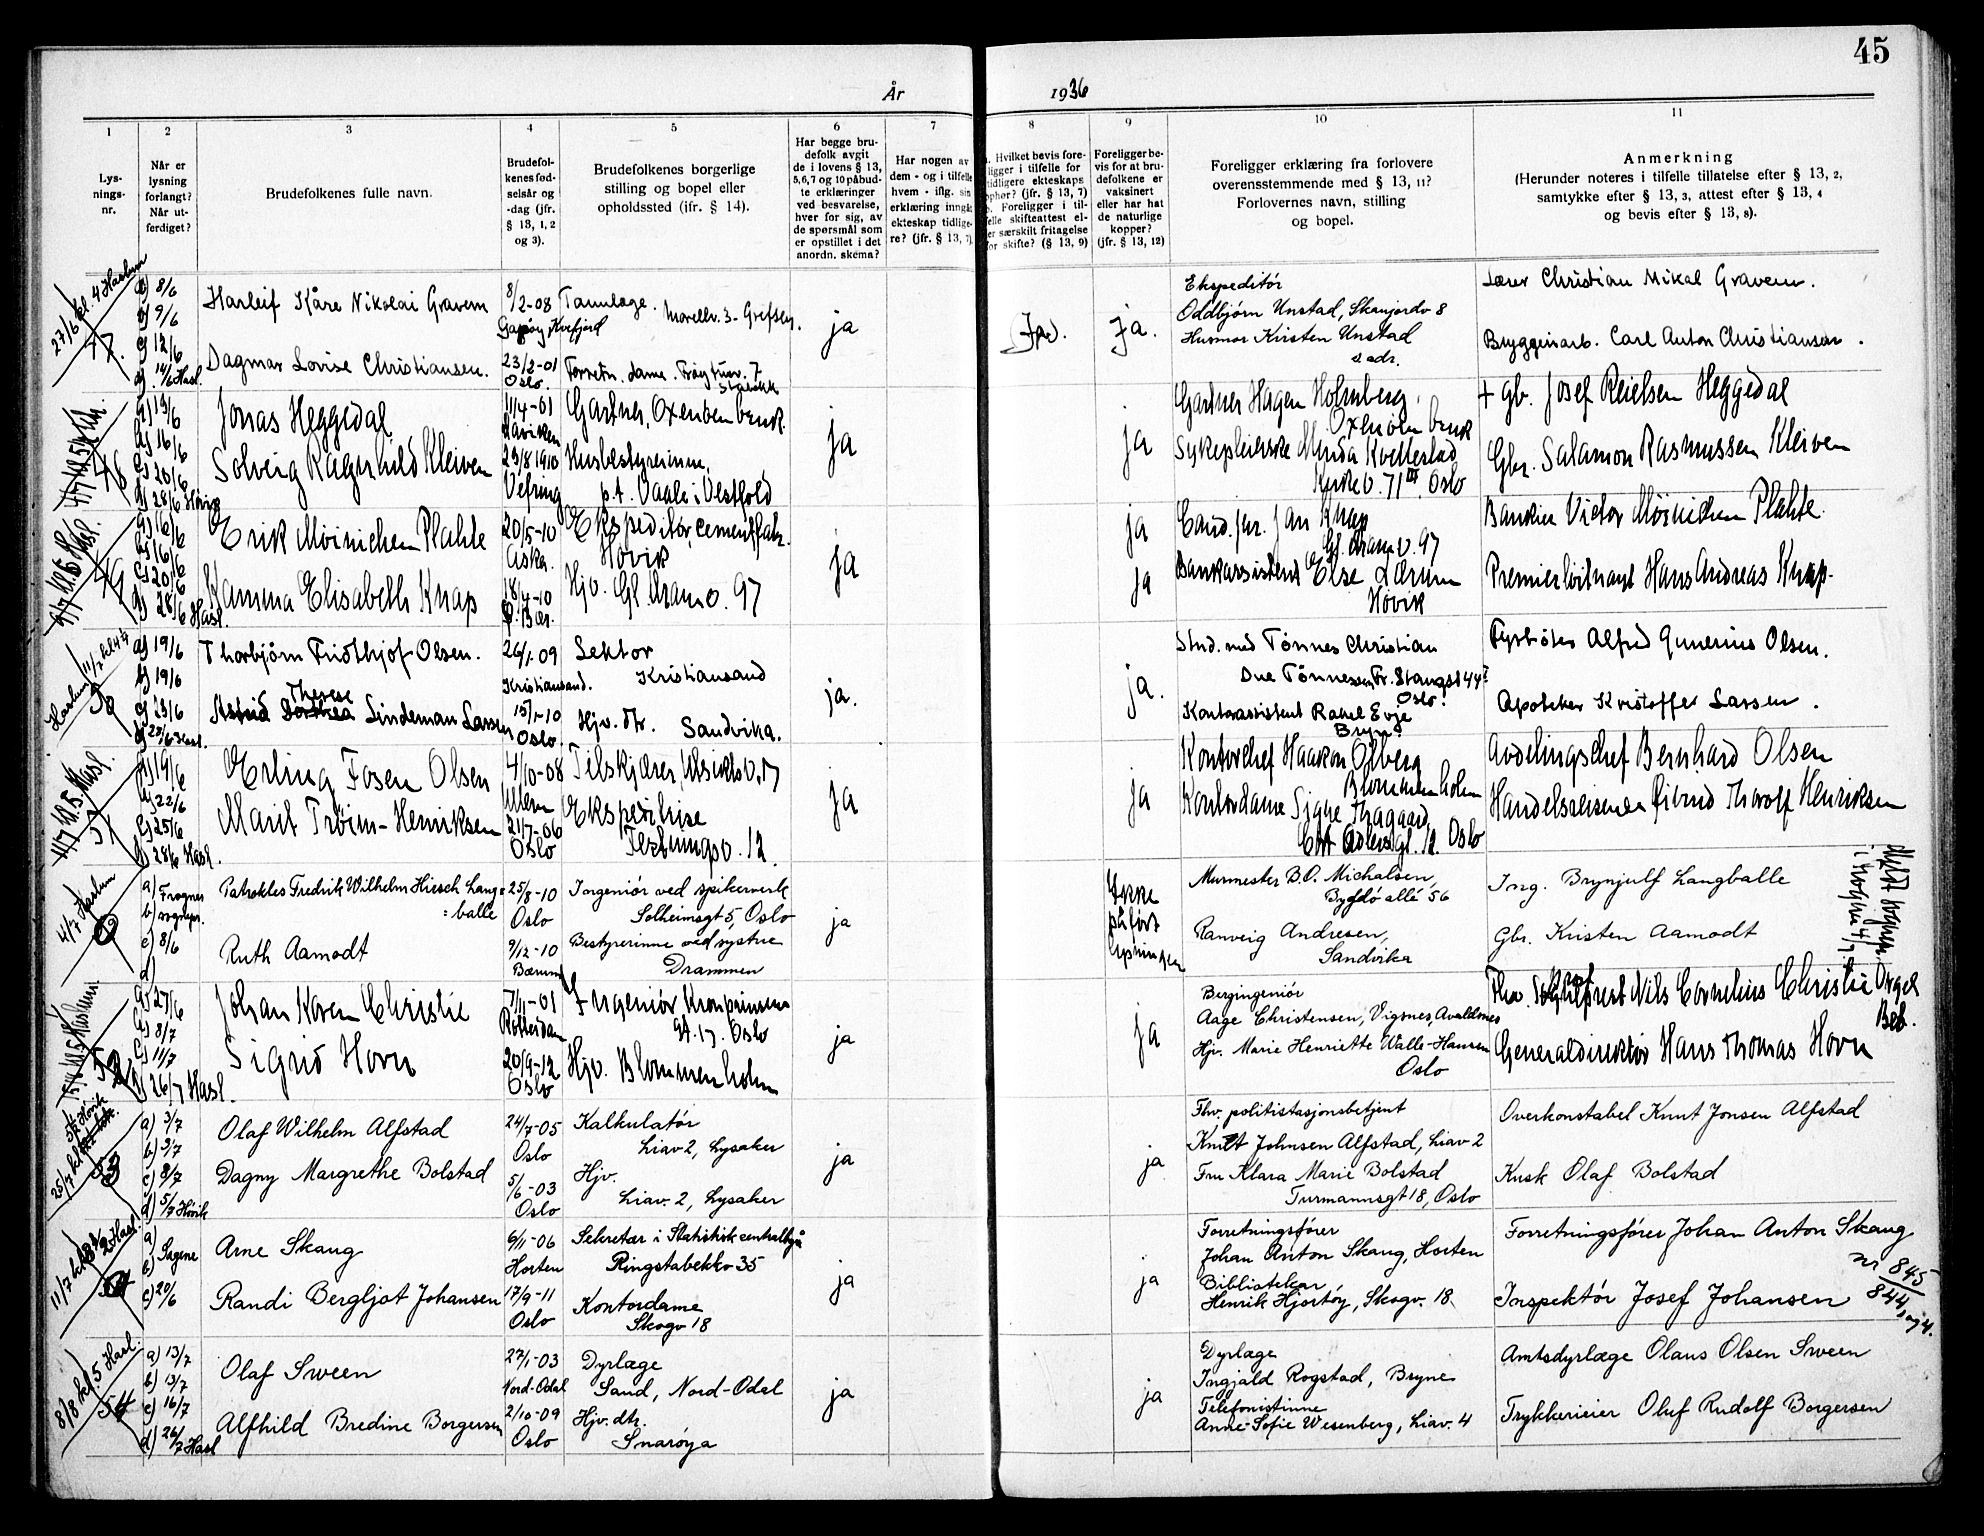 45
År 1936
1 2 3 4 5 6 7 8 9 10 11
Lys-
nings-
nr.
Når er
lysning
forlangt?
Når ut-
ferdiget?
Brudefolkenes fulle navn.
Brudefol-
kenes fød-
selsår og
-dag (jfr.
§ 13, 1, 2
og 3).
Brudefolkenes borgerlige
stilling og bopel eller
opholdssted (ifr. § 14).
Har begge bru-
defolk avgit
de i lovens § 13,
5,6,7 og 10 påbud-
te erklæringer
ved besvarelse,
hver for sig, av
de spørsmål som
er opstillet i det
anordn. skema?
Har nogen av
dem - og i tilfelle
hvem - iflg. sin
erklæring inngåt
ekteskap tidlige-
re? (jfr. § 13, 7).
Hvilket bevis fore-
ligger i tilfelle for
tidligere ekteskaps
ophør? (jfr. § 13, 7)
b. Foreligger i til-
felle skifteattest el-
er særskilt fritagelse
for skifte? (§ 13, 9)
Foreligger be-
vis for at bru-
defolkene er
vaksinert
eller har hat
de naturlige
kopper?
(jfr. § 13, 12)
Foreligger erklæring fra forlovere
overensstemmende med § 13, 11?
Forlovernes navn, stilling
og bopel.
Anmerkning
(Herunder noteres i tilfelle tillatelse efter § 13, 2,
samtykke efter § 13, 3, attest efter § 13, 4
og bevis efter § 13, 8).
27/6 kl. 4 Haslum
47.
a) 8/6
b) 9/6
c) 12/6
d) 14/6 Hasl.
Harleif Kåre Nikolai Gravem
8/2-08
Kvefjord
Tannlæge. Morellv. 3 - Grefsen.
Dagmar Lovise Christiansen.
23/2-01
Oslo.
Forretn. dame. 7
ja
Ja.
Ja.
Ekspeditør
Oddbjørn Unstad, 8
Husmor Kirsten Unstad
s. adr.
Lærer Christian Mikal Gravem.
Bryggeriarb. Carl Anton Christiansen.
48
16/6
20/6
28/6 Høvik
Jonas Heggedal
11/4-01
Gartner, Oxenøen bruk
Solveig Ragnhild Kleiven
23/8 1910
Vefring
Husbestyrerinne,
p.t. Vaale i Vestfold
ja
ja
Gartner Hagen Holmberg,
Oxenøen bruk
Sykepleierske Kvellestad
71 III, Oslo
+ Gb. Josef Reielsen Heggedal
Gbr. Salamon Rasmussen Kleiven
49
a) 16/6
b) 16/6
c) 20/6
d) 28/6 Hasl.
Erik Møinichen Plahte
20/5-10
Aske.
Ekspeditør, cementfabr.
Høvik
Kamma Elisabeth Knap
18/4-10
Ø. Bær.
Hjv. Gl. Dramv. 97
ja
ja
ja
Cand. jur. Jan Knap
Gl. Dram. v. 97
Bankassistent Else Lærum
Høvik
Bankier Victor Møinichen Plahte.
Premierløitnant Hans Andreas Knap.
Haslum 11/7
50
a) 19/6
b) 19/6
c) 23/6
d) 28/6 Hasl.
Thorbjørn Fridthjof Olsen.
26/1-09
Kristiansand.
Lektor
Kristiansand
Astrid Therese Lindeman Larsen
15/1-10
Oslo
Hjv. dtr. Sandvika.
ja.
ja.
Stud. med Tønnes Christian
Due Tønnessen, Fr. Stangsgt 44 I
Oslo.
Kontorassistent Rakel Evje
Bryn
Fyrbøter Alfred Gunerius Olsen.
Apoteker Kristoffer Larsen.
51
a) 19/6
b) 22/6
c) 25/6
d) 28/6 Hasl.
Erling Fosen Olsen
4/10-08
Ullern
Tilskjærer, Utsiktsv. 17
Marit Trøim-Henriksen
21/7-06
Oslo
Ekspeditrise
v. 12.
ja
ja
Kontorchef Haakon Ølberg
Blommenholm
Kontordame Sigge Thagaard,
Cort Adelersgt. 12. Oslo
Avdelingschef Bernhard Olsen
Handelsreisende Eivind Tharolf Henriksen
4/7 Haslum
a) Frogner
b) sognepr.
c) 8/6
d)
Patroklos Fredrik Wilhelm Hirsch Lang-
balle
25/8-10
Oslo
Ingeniør ved spikerverk
Solheimsgt 5, Oslo
Ruth Aamodt
9/12-10
Bærum
Bestyrerinne ved systue
Drammen
ja
Ikke
påført
lysningen
Murmester B.O. Michalsen,
Bygdø allé 56
Ranveig Andresen,
Sandvika
Ing. Brynjulf Langballe
Gbr. Kristen Aamodt
52
a) 27/6
b) 8/7
c) 11/7
d) 26/7 Hasl.
Johan Koren Christie
7/11-01
Rotterdam
Ingeniør Kronprinsens
gt. 17. Oslo
Sigrid Horn
20/9-12
Oslo
Hjv. Blommenholm
ja
ja
Bergingeniør
Aage Christensen, Vigsnes, Avaldsnes
Hjv. Marie Henriette Walle-Hansen
Oslo
Nils Cornelius Christie
Generaldirektør Hans Thomas Horn
53
a) 3/7
b) 3/7
c) 8/7
d) 5/7 Høvik
Olaf Wilhelm Alfstad
24/7-05
Oslo
Kalkulatør
Liav 2, Lysaker
Dagny Margrethe Bolstad
5/6-03
Oslo
Hjv.
Liav. 2, Lysaker
ja
ja
Fhv. politistasjonsbetjent
Knut Johnsen Alfstad, Liav 2
Fru Klara Marie Bolstad
Turmannsgt 18, Oslo
Overkonstabel Knut Jonsen Alfstad
Kusk Olaf Bolstad
54
a)
b) Sagene
c) 20/6
Arne Skaug
6/11-06
Horten
Sekretær i Statistisk centralbyrå
Ringstabekkv 35
Randi Bergljot Johansen
17/9-11
Oslo
Kontordame
Skogv 18
ja
ja
Forretningsfører
Johan Anton Skaug, Horten
Bibliotekar
Henrik Hjartøy, Skogv. 18.
Forretningsfører Johan Anton Skaug
Inspektør Josef Johansen
nr 845
844
8/8 kl. 5 Hasl.
54
a) 13/7
b) 13/7
c) 16/7
d) 26/7 Hasl
Olaf Sveen
27/1-03
Nord-Odal
Dyrlæge
Sand, Nord-Odal
Alfhild Bredine Borgersen
2/10-09
Oslo
Hjv. dtr.
Snarøya
ja
ja
Dyrlæge
Ingjald Rogstad, Bryne
Telefonistinne
Anne-Sofie Wesenberg, Liav. 4
Amtsdyrlæge Olaus Olsen Sveen
Trykkerieier Oluf Rudolf Borgersen